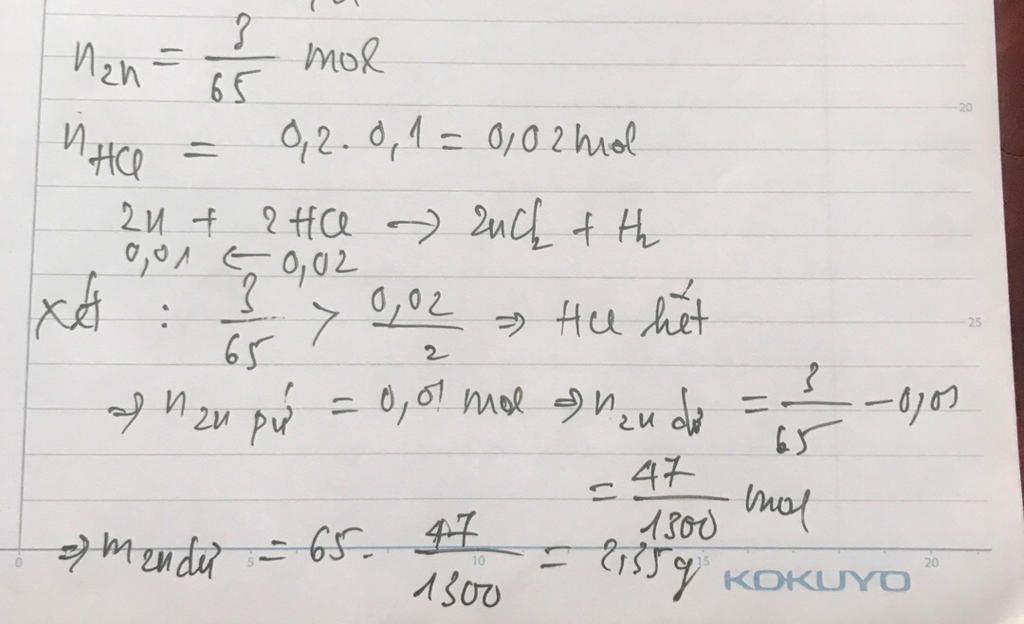 n_Zn = 3/65 mol
n_HCl = 0,2. 0,1 = 0,02 mol
Zn + 2HCl → ZnCl₂ + H₂
0,01 ← 0,02
xét : 3/65 > 0,02/2 ⇒ HCl hết
⇒ n_Zn pứ = 0,01 mol ⇒ n_Zn dư = 3/65 - 0,01
= 47/1300 mol
⇒ m_Zn dư = 65. 47/1300 = 2,35g
KOKUYO
20
25
0 5 10 15 20